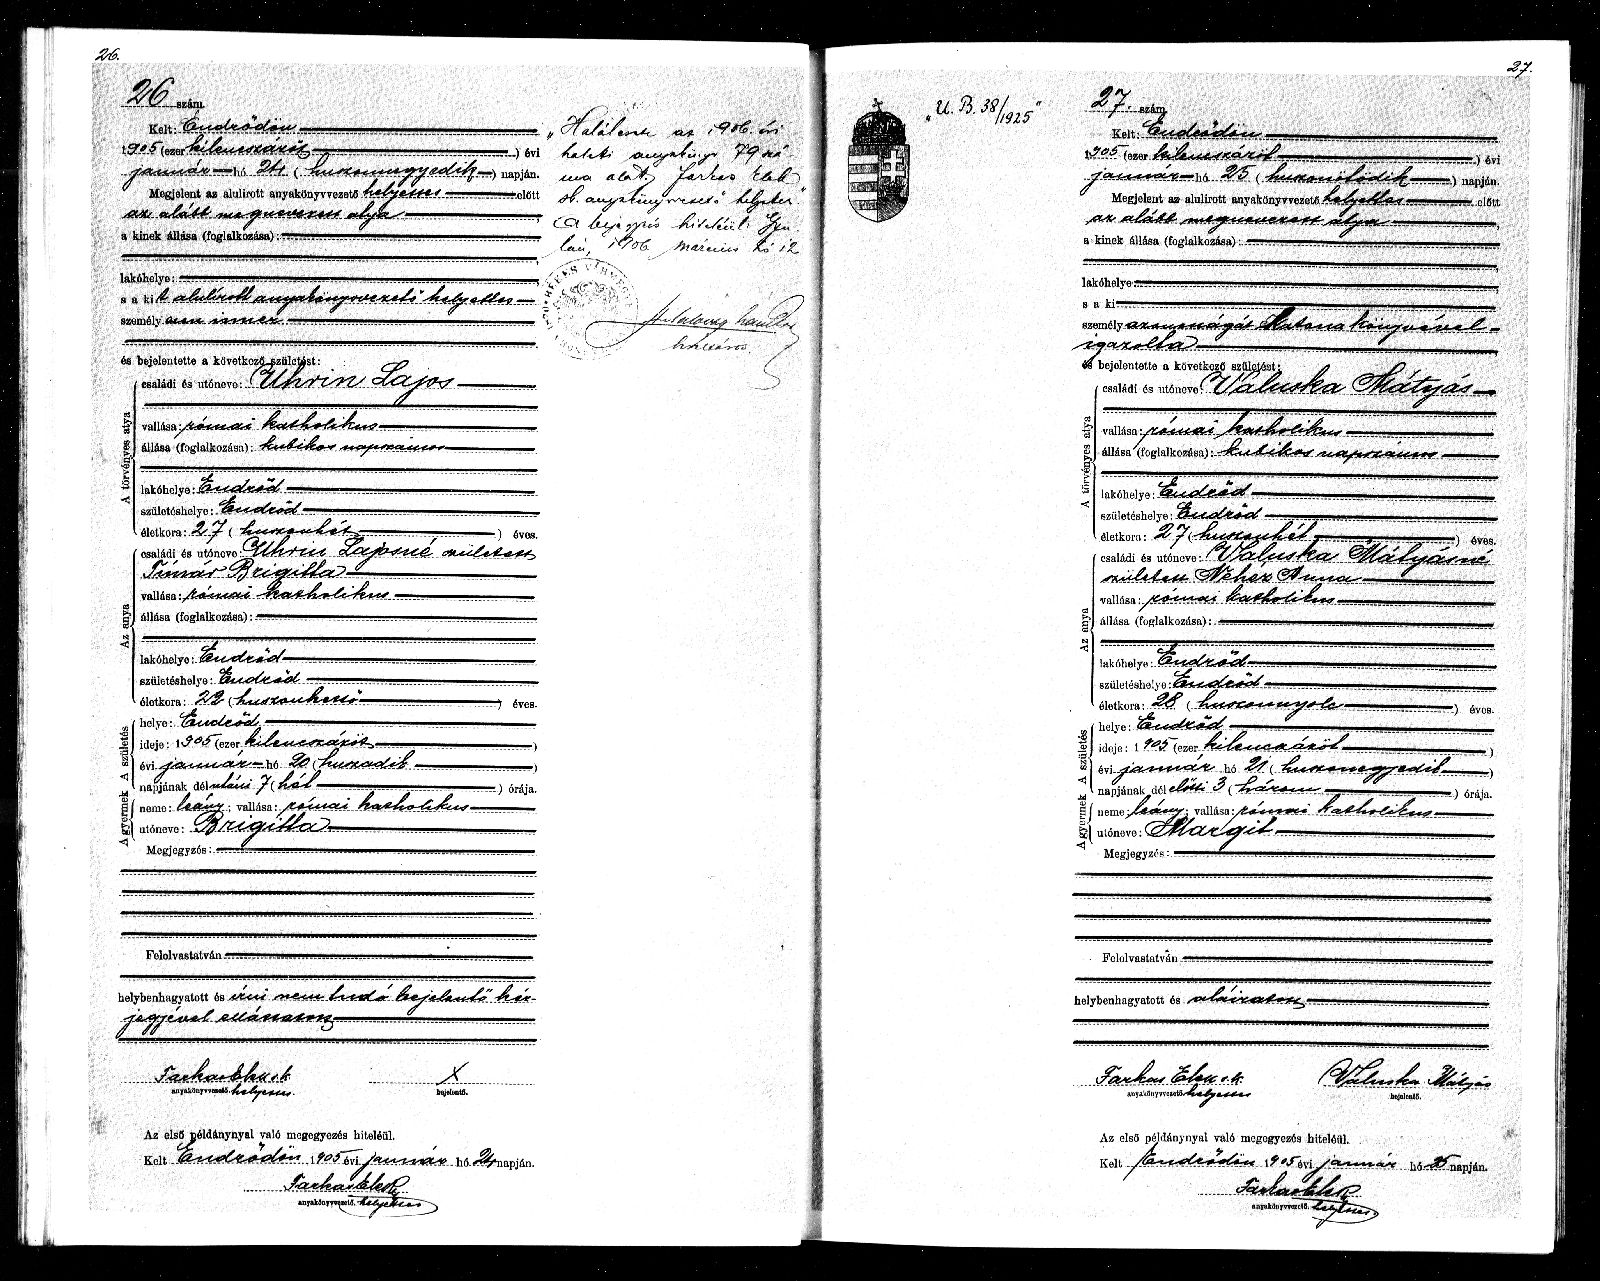 26.
26 szám
Kelt: Endrődön
1905 (ezer kilencszázöt) évi
január hó 24 (huszonnegyedik) napján.
Megjelent az alulirott anyakönyvvezető helyettes előtt
az alább megnevezett atya
a kinek állása (foglalkozása):
lakóhelye:
s a kit alulírott anyakönyvvezető helyettes
személyesen ismer
és bejelentette a következő születést:
A törvényes atya
családi és utóneve: Uhrin Lajos
vallása: római katholikus
állása (foglalkozása): kubikos napszámos
lakóhelye: Endrőd
születéshelye: Endrőd
életkora: 27 (huszonhét) éves.
Az anya
családi és utóneve: Uhrin Lajosné született
Tímár Brigitta
vallása: római katholikus
állása (foglalkozása):
lakóhelye: Endrőd
születéshelye: Endrőd
életkora: 22 (huszonkettő) éves.
A születés
helye: Endrőd
ideje: 1905 (ezer kilencszázöt)
évi január hó 20 (huszadik)
napjának délutáni 7 (hét) órája.
A gyermek
neme: leány; vallása: római katholikus
utóneve: Brigitta
Megjegyzés:
Felolvastatván
helybenhagyatott és írni nem tudó bejelentő kéz-
jegyével elláttatott
Farkas Elek s.k. X
anyakönyvvezető helyettes. bejelentő.
Az első példánynyal való megegyezés hiteléül.
Kelt Endrődön 1905 évi január hó 24 napján.
Farkas Elek
anyakönyvvezető. helyettes
„Halálesete az 1906. évi
haláli anyakönyv 79 szá-
ma alatt. Farkas Elek
s.k. anyakönyvvezető helyettes"
A bejegyzés hiteléül Gyu-
lán, 1906. március hó 12
BÉKÉS VÁRMEGYE
27.
„U. B. 38/1925"
27. szám
Kelt: Endrődön
1905 (ezer kilencszázöt) évi
január hó 25 (huszonötödik) napján.
Megjelent az alulirott anyakönyvvezető helyettes előtt
az alább megnevezett atya
a kinek állása (foglalkozása):
lakóhelye:
s a ki
személyazonosságát Katona könyvével
igazolta
és bejelentette a következő születést:
A törvényes atya
családi és utóneve: Valuska Mátyás
vallása: római katholikus
állása (foglalkozása): kubikos napszámos
lakóhelye: Endrőd
születéshelye: Endrőd
életkora: 27 (huszonhét) éves.
Az anya
családi és utóneve: Valuska Mátyásné
született Nehéz Anna
vallása: római katholikus
állása (foglalkozása):
lakóhelye: Endrőd
születéshelye: Endrőd
életkora: 28 (huszonnyolc) éves.
A születés
helye: Endrőd
ideje: 1905 (ezer kilencszázöt)
évi január hó 21 (huszonegyedik)
napjának délelőtti 3 (három) órája.
A gyermek
neme: leány; vallása: római katholikus
utóneve: Margit
Megjegyzés:
Felolvastatván
helybenhagyatott és aláiratott
Farkas Elek s.k. Valuska Mátyás
anyakönyvvezető helyettes bejelentő.
Az első példánynyal való megegyezés hiteléül.
Kelt Endrődön 1905 évi január hó 25 napján.
Farkas Elek
anyakönyvvezető. helyettes